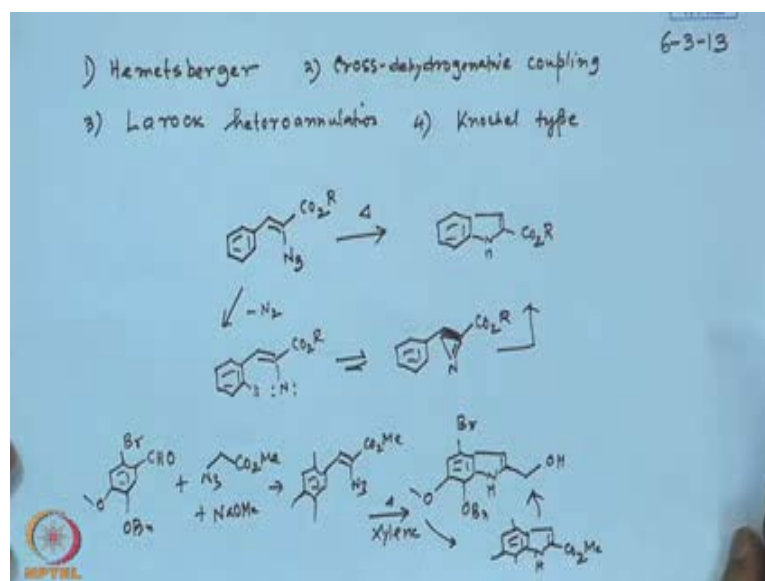 6-3-13
1) Hemetsberger 2) Cross-dehydrogenative coupling
3) Larock heteroannulation 4) Knochel type
CO2R
Δ
N3
N
CO2R
-N2
CO2R
:N:
CO2R
N
Br
CHO
O
OBn
+
N3
CO2Me
+ NaOMe
CO2Me
N3
Δ
Xylene
Br
OH
N
H
O
OBn
N
H
CO2Me
NPTEL